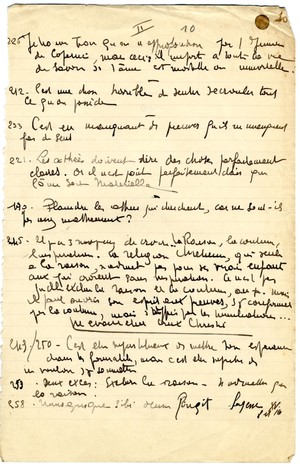 II 10
218. Je trouve bon qu'on n'approfondisse pas l'opinion
de Copernic, mais ceci : il importe à toute la vie
de savoir si l'âme est mortelle ou immortelle.
212. C'est une chose horrible de sentir s'écouler tout
ce qu'on possède
233 C'est en manquant de preuves qu'ils ne manquent
pas de sens
221. Les athées doivent dire des choses parfaitement
claires. Or il n'est point parfaitement clair que
l'âme soit matérielle
190. Plaindre les athées qui cherchent, car ne sont-ils
pas assez malheureux ?
245. Il y a 3 moyens de croire. La Raison, la coutume,
l'inspiration. La religion chrétienne, qui seule
a la raison, n'admet pas pour ses vrais enfants
ceux qui croient sans inspiration. Ce n'est pas
qu'elle exclue la raison et la coutume, au
il faut ouvrir son esprit aux preuves, s'y confirmer
par la coutume, mais s'offrir par les humiliations...
Ne evacuetur crux Christi
249/250 - C'est être superstitieux de mettre son espérance
dans les formalités, mais c'est être superbe de
ne vouloir s'y soumettre
253 - deux excès : Exclure la raison - n'admettre que
la raison.
258 - Unusquisque sibi deum fingit